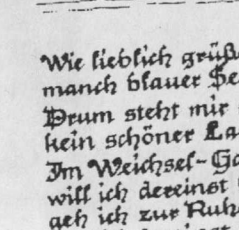 Wie lieblich grüß
manch blauer Se
Drum steht mir
kein schöner La
Im Weichsel-Ga
will ich dereinst
geh ich zur Ruh